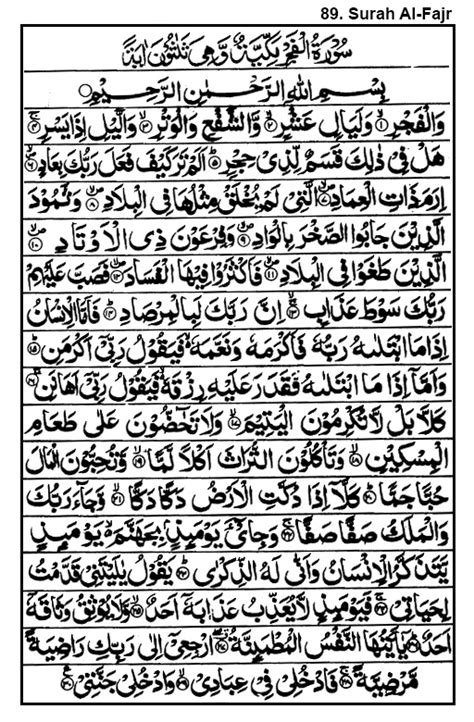 89. Surah Al-Fajr
سُوْرَةُ الْفَجْرِ مَكِّيَّةٌ وَّهِيَ ثَلٰثُوْنَ اٰيَةً
بِسْمِ اللهِ الرَّحْمٰنِ الرَّحِيْمِ
وَالْفَجْرِ ۱ وَلَيَالٍ عَشْرٍ ۲ وَّالشَّفْعِ وَالْوَتْرِ ۳ وَالَّيْلِ اِذَا يَسْرِ ۴
هَلْ فِيْ ذٰلِكَ قَسَمٌ لِّذِيْ حِجْرٍ ۵ اَلَمْ تَرَ كَيْفَ فَعَلَ رَبُّكَ بِعَادٍ ۶
اِرَمَ ذَاتِ الْعِمَادِ ۷ الَّتِيْ لَمْ يُخْلَقْ مِثْلُهَا فِي الْبِلَادِ ۸ وَثَمُوْدَ
الَّذِيْنَ جَابُوا الصَّخْرَ بِالْوَادِ ۹ وَفِرْعَوْنَ ذِي الْاَوْتَادِ ۱۰
الَّذِيْنَ طَغَوْا فِي الْبِلَادِ ۱۱ فَاَكْثَرُوْا فِيْهَا الْفَسَادَ ۱۲ فَصَبَّ عَلَيْهِمْ
رَبُّكَ سَوْطَ عَذَابٍ ۱۳ اِنَّ رَبَّكَ لَبِالْمِرْصَادِ ۱۴ فَاَمَّا الْاِنْسَانُ
اِذَا مَا ابْتَلٰىهُ رَبُّهٗ فَاَكْرَمَهٗ وَنَعَّمَهٗ فَيَقُوْلُ رَبِّيْ اَكْرَمَنِ ۱۵
وَاَمَّا اِذَا مَا ابْتَلٰىهُ فَقَدَرَ عَلَيْهِ رِزْقَهٗ فَيَقُوْلُ رَبِّيْ اَهَانَنِ ۱۶
كَلَّا بَلْ لَّا تُكْرِمُوْنَ الْيَتِيْمَ ۱۷ وَلَا تَحٰٓضُّوْنَ عَلٰى طَعَامِ
الْمِسْكِيْنِ ۱۸ وَتَاْكُلُوْنَ التُّرَاثَ اَكْلًا لَّمًّا ۱۹ وَّتُحِبُّوْنَ الْمَالَ
حُبًّا جَمًّا ۲۰ كَلَّا اِذَا دُكَّتِ الْاَرْضُ دَكًّا دَكًّا ۲۱ وَّجَآءَ رَبُّكَ
وَالْمَلَكُ صَفًّا صَفًّا ۲۲ وَجِايْٓءَ يَوْمَئِذٍۭ بِجَهَنَّمَ يَوْمَئِذٍ
يَّتَذَكَّرُ الْاِنْسَانُ وَاَنّٰى لَهُ الذِّكْرٰى ۲۳ يَقُوْلُ يٰلَيْتَنِيْ قَدَّمْتُ
لِحَيَاتِيْ ۲۴ فَيَوْمَئِذٍ لَّا يُعَذِّبُ عَذَابَهٗٓ اَحَدٌ ۲۵ وَّلَا يُوْثِقُ وَثَاقَهٗٓ
اَحَدٌ ۲۶ يٰٓاَيَّتُهَا النَّفْسُ الْمُطْمَئِنَّةُ ۲۷ ارْجِعِيْٓ اِلٰى رَبِّكِ رَاضِيَةً
مَّرْضِيَّةً ۲۸ فَادْخُلِيْ فِيْ عِبَادِيْ ۲۹ وَادْخُلِيْ جَنَّتِيْ ۳۰